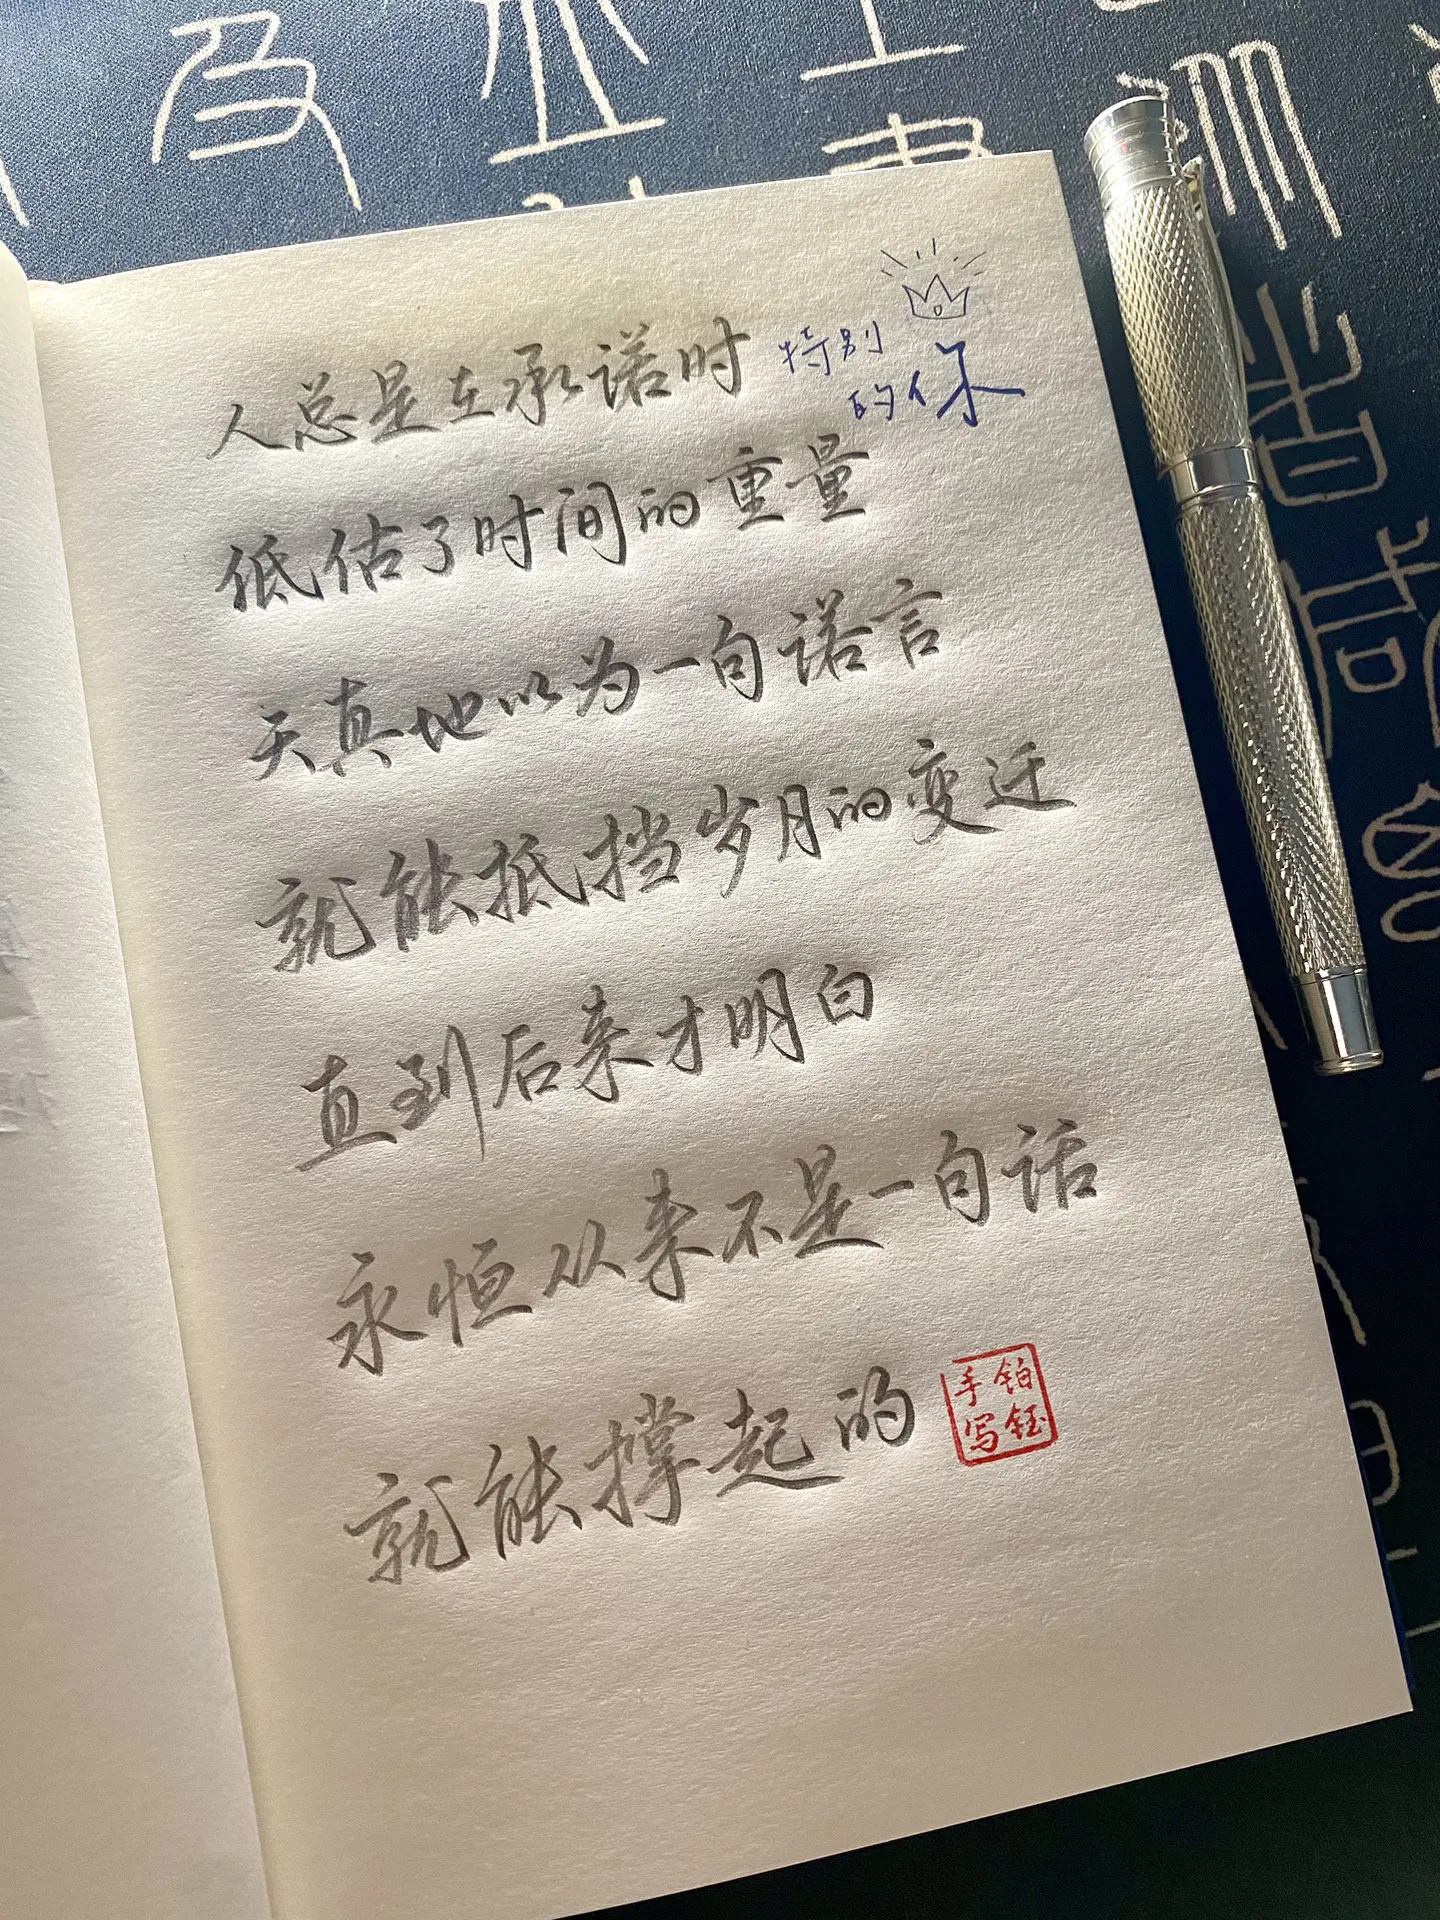 人总是在承诺时
特别
的你
低估了时间的重量
天真地以为一句诺言
就能抵挡岁月的变迁
直到后来才明白
永恒从来不是一句话
就能撑起的
铂钰
手写